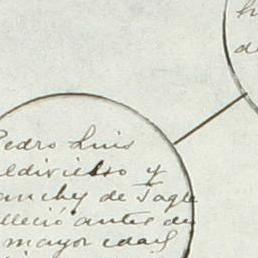 Pedro Luis
aldivielso y
anchez de Tagle
lleció antes de
mayor edad